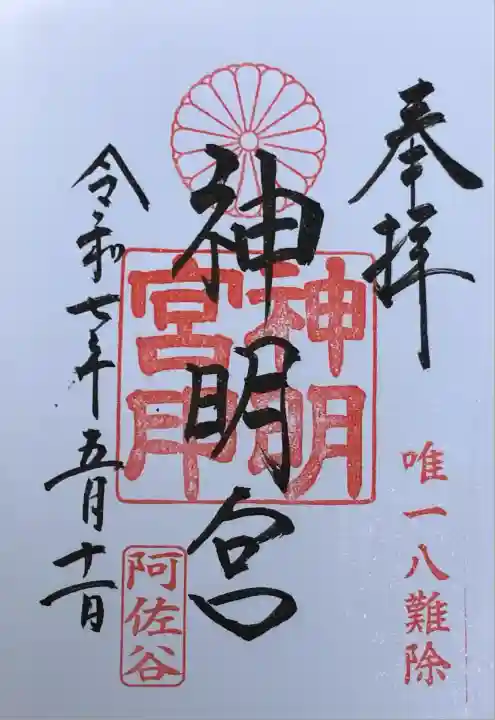 奉拝
唯一八難除
神明宮
神明宮印
令和七年五月十一日
阿佐谷